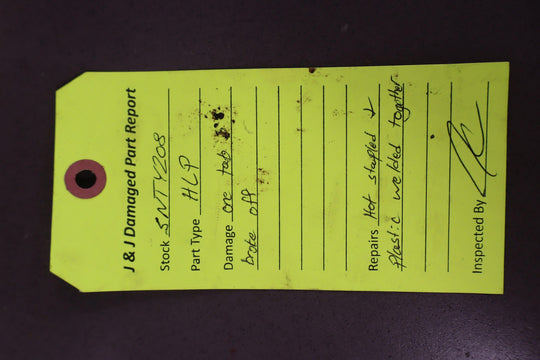 J & J Damaged Part Report
Stock SNTY208
Part Type HLP
Damage one tab
broke off
Repairs Hot stapled &
plastic welded together
Inspected By